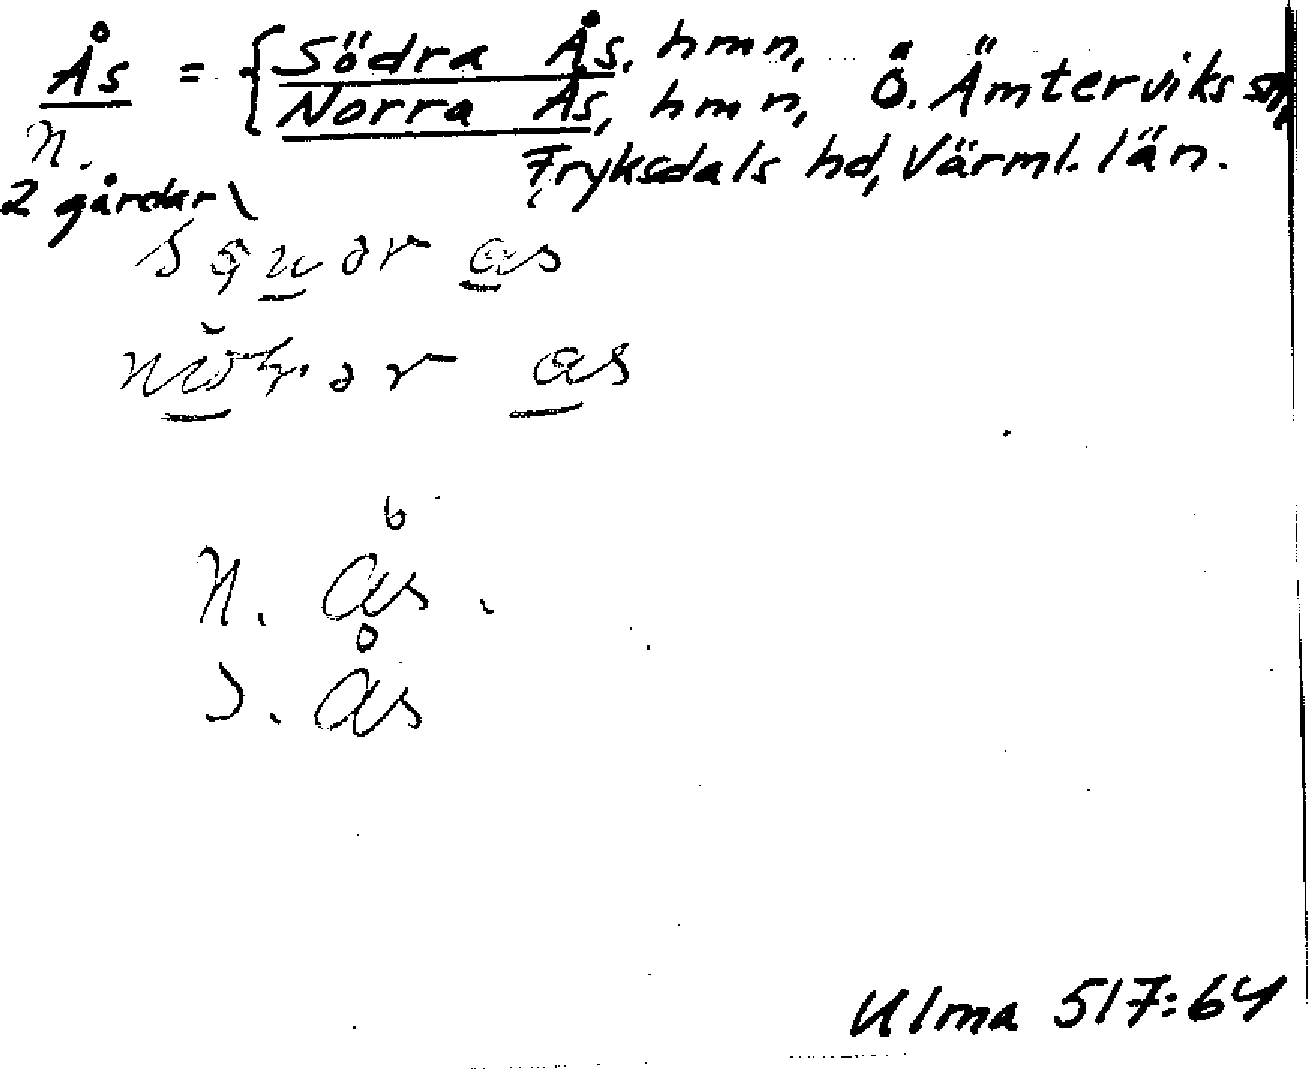 Ås = { Södra Ås, hmn,
Norra Ås, hmn, Ö. Ämterviks sn,
n. Fryksdals hd, Värml. län.
2 gårdar
as
as
N. ås.
S. ås
Ulma 517:64